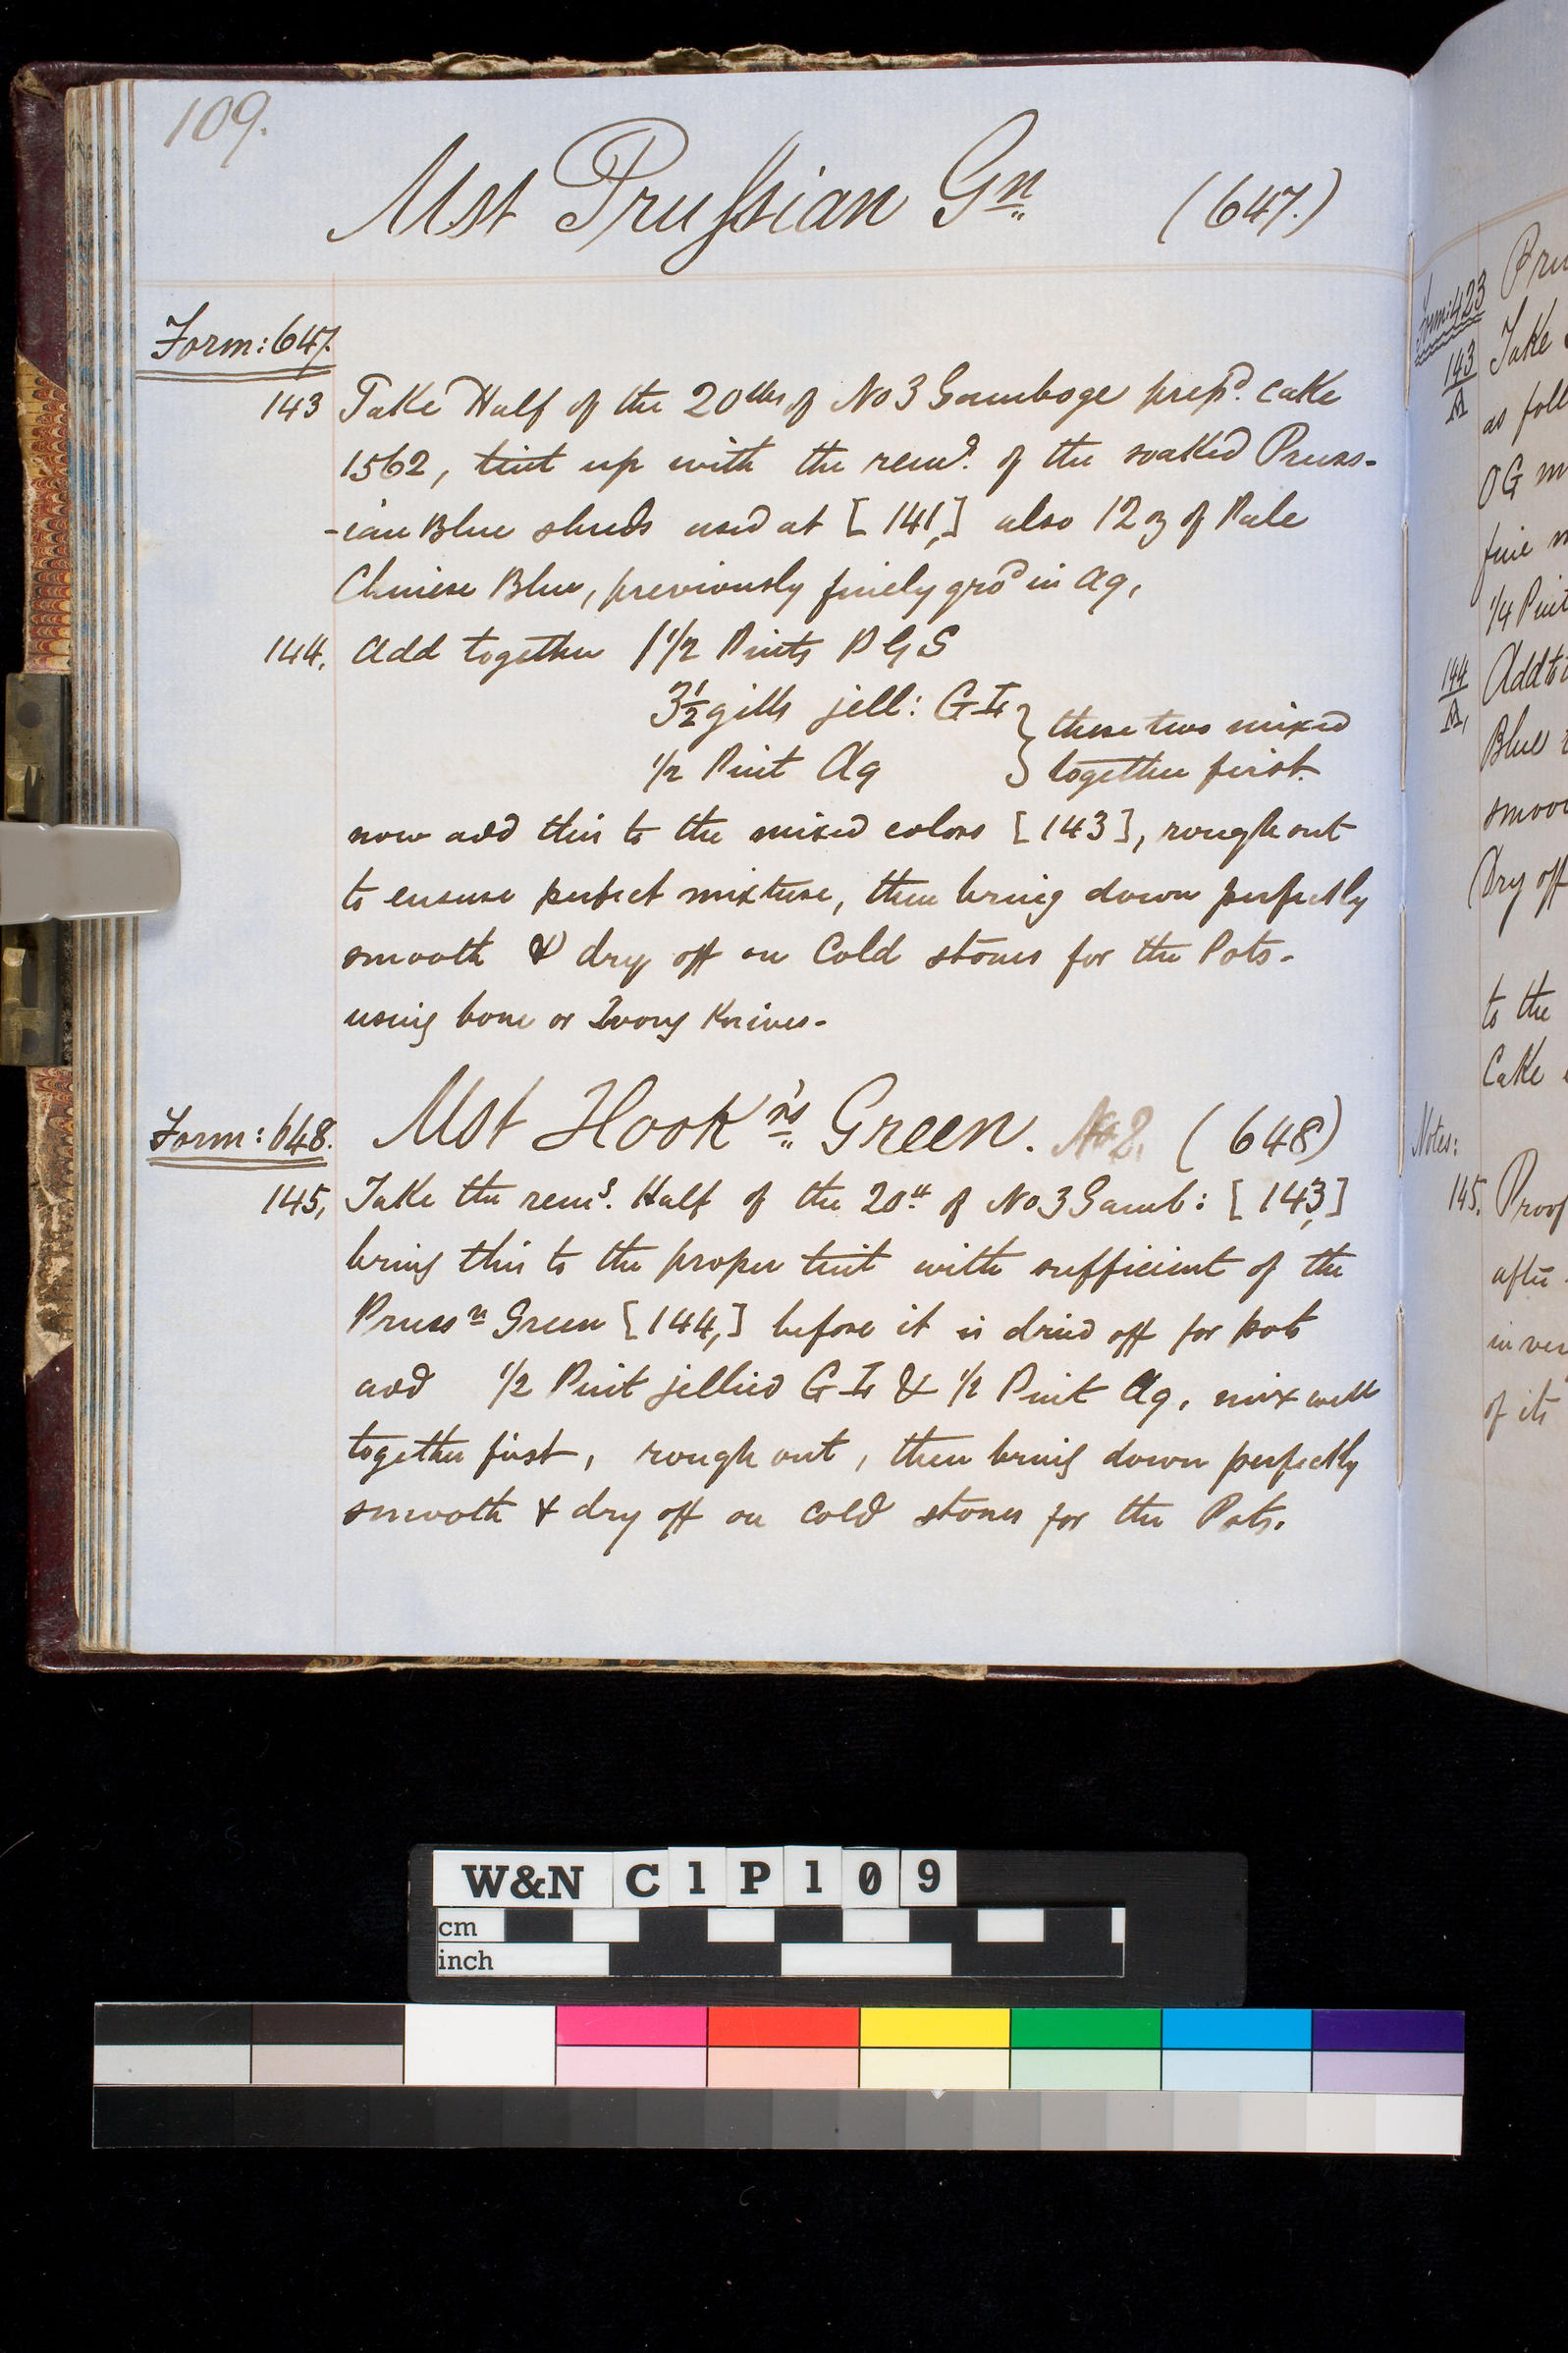 109.
Mst Prussian Gn (647.)
Form: 647.
143 Take Half of the 20 lbs of No 3 Gamboge prepd. Cake
1562, tint up with the remd. of the soaked Pruss-
-ian Blue shreds used at [141,] also 12 oz of Pale
Chinese Blue, previously finely grod in Aq,
144, Add together 1 1/2 Pints P G S
3 1/2 gills jell: G Tr } these two mixed
1/2 Pint Aq } together first.
now add this to the mixed colors [143], rough out
to ensure perfect mixture, then bring down perfectly
smooth & dry off on Cold stones for the Pots-
using bone or Ivory Knives-
Form: 648. Mst Hookrs Green. No 2. (648)
145, Take the remg. Half of the 20 lb of No 3 Gamb: [143,]
bring this to the proper tint with sufficient of the
Prussn Green [144,] before it is dried off for pots
add 1/2 Pint jellied G Tr & 1/2 Pint Aq, mix well
together first, rough out, then bring down perfectly
smooth & dry off on Cold stones for the Pots.
Form: 423
143
A
Take
as foll
OG m
fine
1/4 Pint
144
A,
Add to
Blue
smoo
Dry off
to the
Cake
Notes:
145. Proof
after
in ver
of its
W&N C1P109
cm
inch